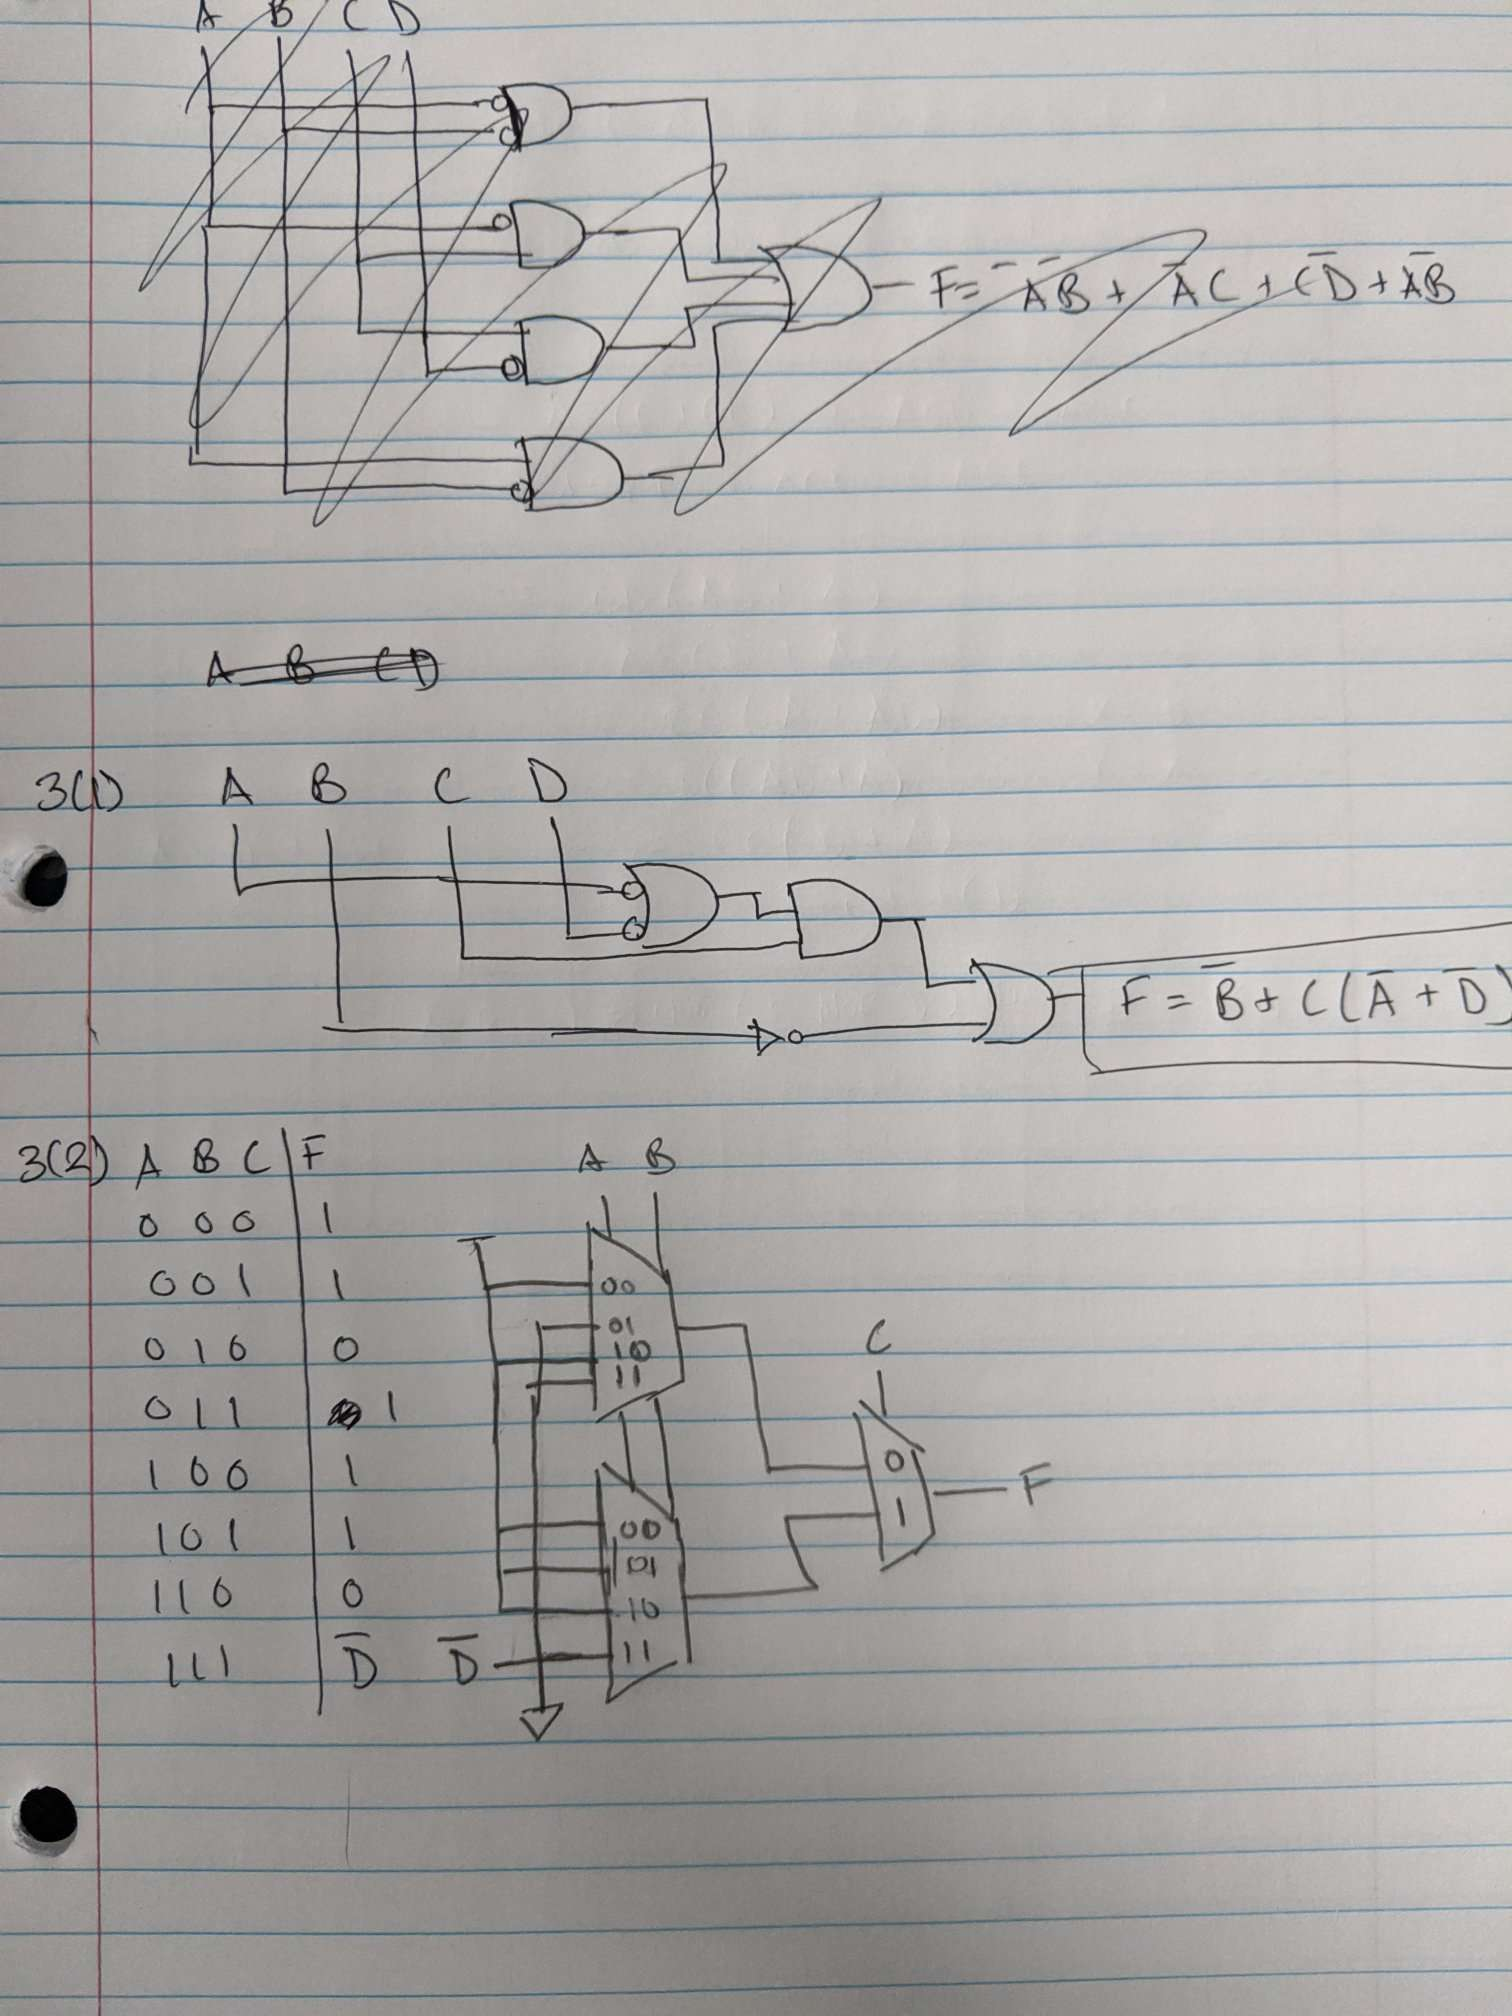 A B C D
F = A̅ B̅ + A̅ C + C D̅ + A B̅
A B C D
3(1) A B C D
F = B̅ + C(A̅ + D̅)
3(2) A B C | F
0 0 0 | 1
0 0 1 | 1
0 1 0 | 0
0 1 1 | 1
1 0 0 | 1
1 0 1 | 1
1 1 0 | 0
1 1 1 | D̅
A B
00
01
10
11
00
01
10
11
D̅
C
0
1
F